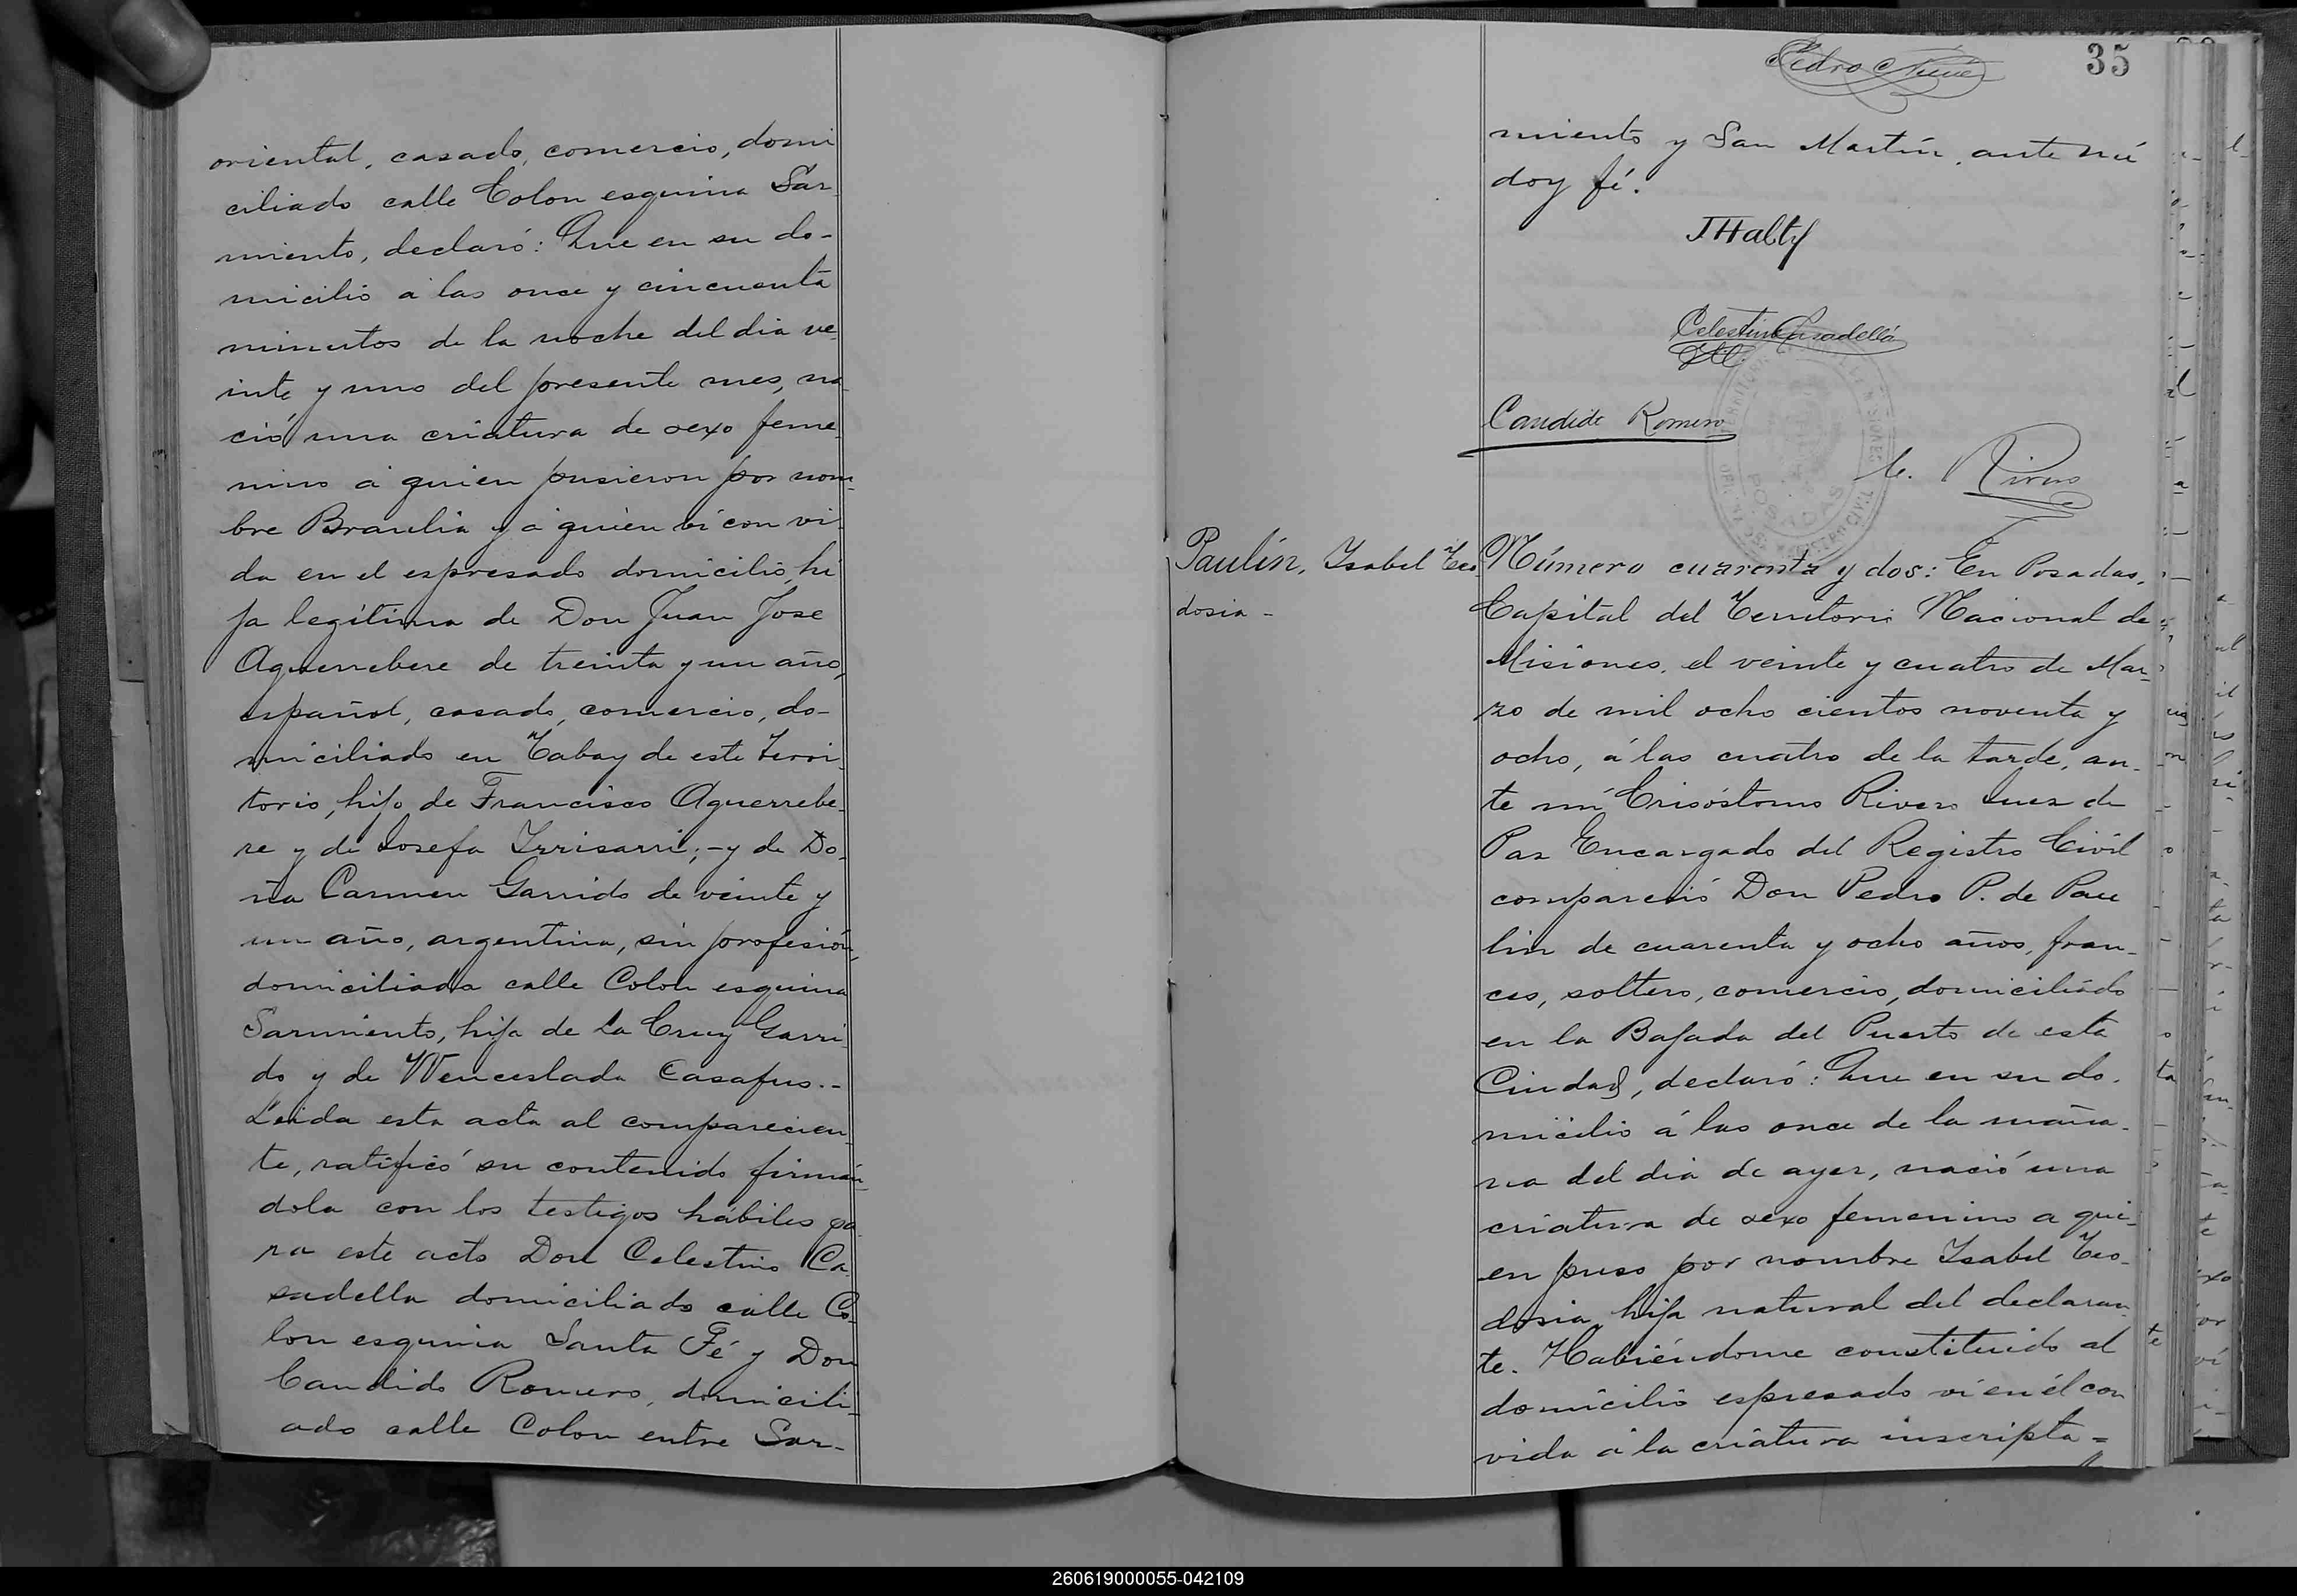 oriental, casado, comercio, domi
ciliado calle Colon esquina Sar
miento, declaró: Que en su do-
micilio a las once y cincuenta
minutos de la noche del dia ve
inte y uno del presente mes, na
ció una criatura de sexo feme
nino a quien pusieron por nom-
bre Braulia y a quien ví con vi
da en el espresado domicilio, hi
ja legítima de Don Juan Jose
Aguerrebere de treinta y un año,
español, casado, comercio, do-
miciliado en Tabay de este Terri
torio, hijo de Francisco Aguerrebe-
re y de Josefa Irrisarri; - y de Do-
ña Carmen Garrido de veinte y
un año, argentina, sin profesión,
domiciliada calle Colon esquina
Sarmiento, hija de La Cruz Garri
do y de Wenceslada Casafus.-
Leida esta acta al comparecien
te, ratificó su contenido firmán-
dola con los testigos hábiles pa
ra este acto Don Celestino Ca
sadella domiciliado calle Co-
lon esquina Santa Fé y Don
Candido Romero, domicili-
ado calle Colon entre Sar-
Pedro
35
miento y San Martín, ante mí
doy fé.
JHalty
Celestino Casadellá
Candido Romero
C. Rivero
POSADAS
Paulín, Isabel Teo
dosia -
Número cuarenta y dos: En Posadas,
Capital del Territorio Nacional de
Misiones, el veinte y cuatro de Mar-
zo de mil ocho cientos noventa y
ocho, á las cuatro de la tarde, an-
te mí Crisóstomo Rivero Juez de
Paz Encargado del Registro Civil
compareció Don Pedro P. de Pau
lin de cuarenta y ocho años, fran-
ces, soltero, comercio, domiciliado
en la Bajada del Puerto de esta
Ciudad, declaró: Que en su do.
micilio á las once de la maña-
na del dia de ayer, nació una
criatura de sexo femenino a qui-
en puso por nombre Isabel Teo-
dosia, hija natural del declaran
te. Habiéndome constituido al
domicilio espresado ví en él con
vida á la criatura inscripta =
260619000055-042109